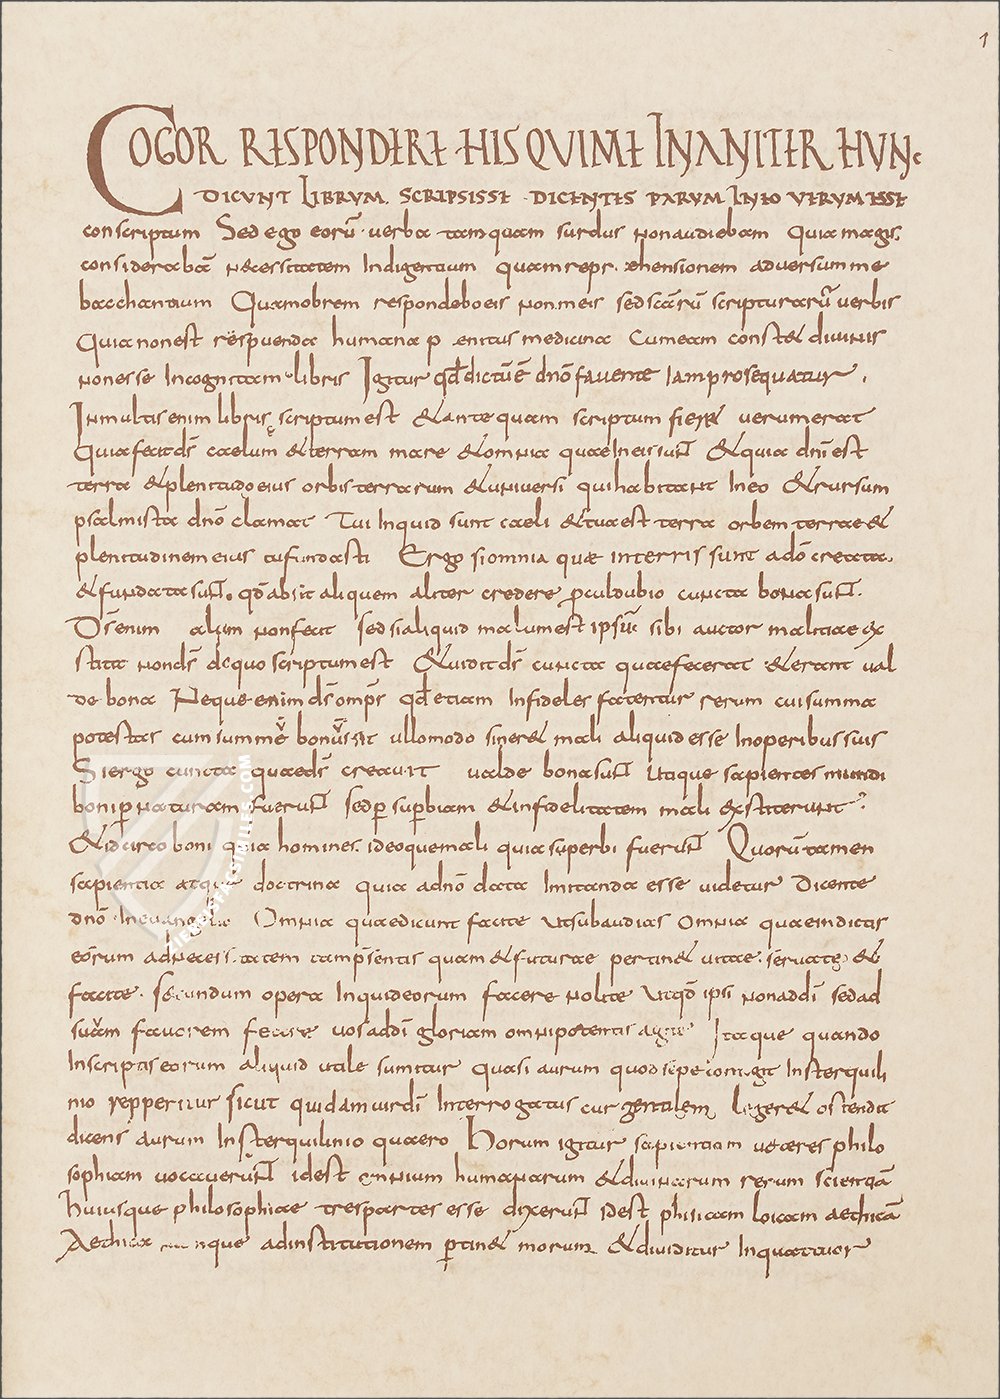 1
COGOR RESPONDERE HIS QVIME INANITER HUNC
DICVNT LIBRVM. SCRIPSISSE · DICENTES PARVM INEO VERVM ESSE
conscriptum Sed ego eorū · verba tamquam surdus non audiebam Quia magis,
considerabā necessitatem Indigentium quam repr ehensionem adversum me
bacchantium Quamobrem respondebo eis non meis sed scārū scripturarū verbis
Quia non est respuenda humana p enitus medicina Cum eam constet divinis
non esse Incognitam libris Igitur qđ dictū ē dnō favente Iam prosequatur ,
In multis enim libris scriptum est & antequam scriptum fieret verum erat
Quia fecit ds̄ caelum & terram mare & omnia quae In eis sunt & quia dnī est
terra & plenitudo eius orbis terrarum & universi qui habitant In eo & rursum
psalmista dnō clamat Tui Inquid sunt caeli & tua est terra orbem terrae &
plenitudinem eius tu fundasti Ergo si omnia quae in terris sunt a dō creata,
& fundata sunt. qđ absit aliquem aliter credere proculdubio cuncta bona sunt.
Ds̄ enim malum non fecit sed si aliquid malum est ipsum sibi auctor malitiae ex
statit non ds̄ de quo scriptum est & vidit ds̄ cuncta quae fecerat & erant val
de bona Neque enim ds̄ omps̄ qđ etiam Infideles fatentur rerum cui summa
potestas cum summe bonus sit ullo modo sineret mali aliquid esse In operibus suis
Si ergo cuncta quae ds̄ creavit valde bona sunt Itaque sapientes mundi
boni per naturam fuerunt sed per superbiam & infidelitatem mali exstiterunt
& idcirco boni quia homines ideoque mali quia superbi fuerunt Quorū tamen
sapientia atque doctrina quia a dnō data Imitanda esse videtur Dicente
dnō In evangelio Omnia quae dicunt facite ut subaudias omnia quae indicas
eōrum ad necess. tatem tam p̄sentis quam & futurae pertinet vitae : servate &
facite . secundum opera Inquid eorum facere nolite Ut qđ ipsi non addī sed ad
suam favorem fecere vos ad dī gloriam omnipotentis agite Itaque quando
In scriptis eorum aliquid utile sumitur quasi aurum quod sepe contigit In sterquili
nio repperitur sicut quidam vir dī Interrogatus cur gentilem legeret ostendit
dicens aurum In sterquilinio quaero Horum igitur sapientiam veteres philo
sophiam vocaverunt id est omnium humanarum & divinarum rerum scientiā
huiusque philosophiae tres partes esse dixerunt id est phisicam loicam aethicā
Aethica namque ad institutionem pertinet morum & dividitur In quattuor
ZIEREISFACSIMILES.COM